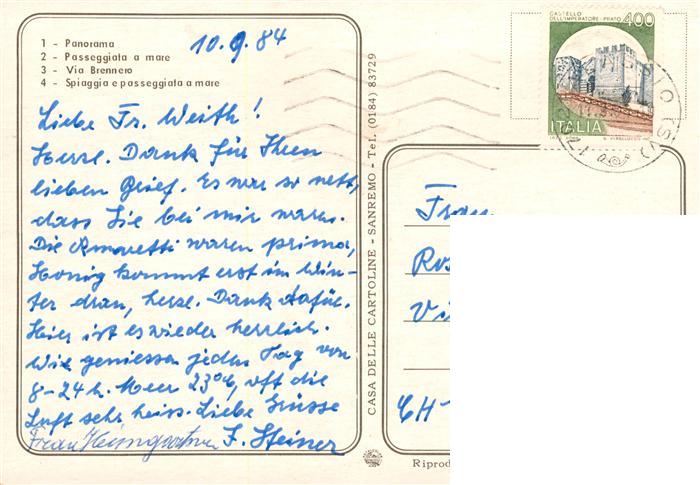 1 - Panorama
2 - Passeggiata a mare
3 - Via Brennero
4 - Spiaggia e passeggiata a mare
10.9.84
Liebe Fr. Weith!
Herzl. Dank für Ihren
lieben Brief. Es war so nett,
dass Sie bei mir waren.
Die Amaretti waren prima,
Honig kommt erst im Win-
ter dran, herzl. Dank dafür.
Hier ist es wieder herrlich.
Wir geniessen jeden Tag von
8-24 h. Meer 23°C, oft die
Luft sehr heiss. Liebe Grüsse
Frau F. Steiner
CASA DELLE CARTOLINE - SANREMO - Tel. (0184) 83729
CASTELLO
DELL'IMPERATORE - PRATO
400
ITALIA
Frau
Ros
Vi
CH-
Riprod